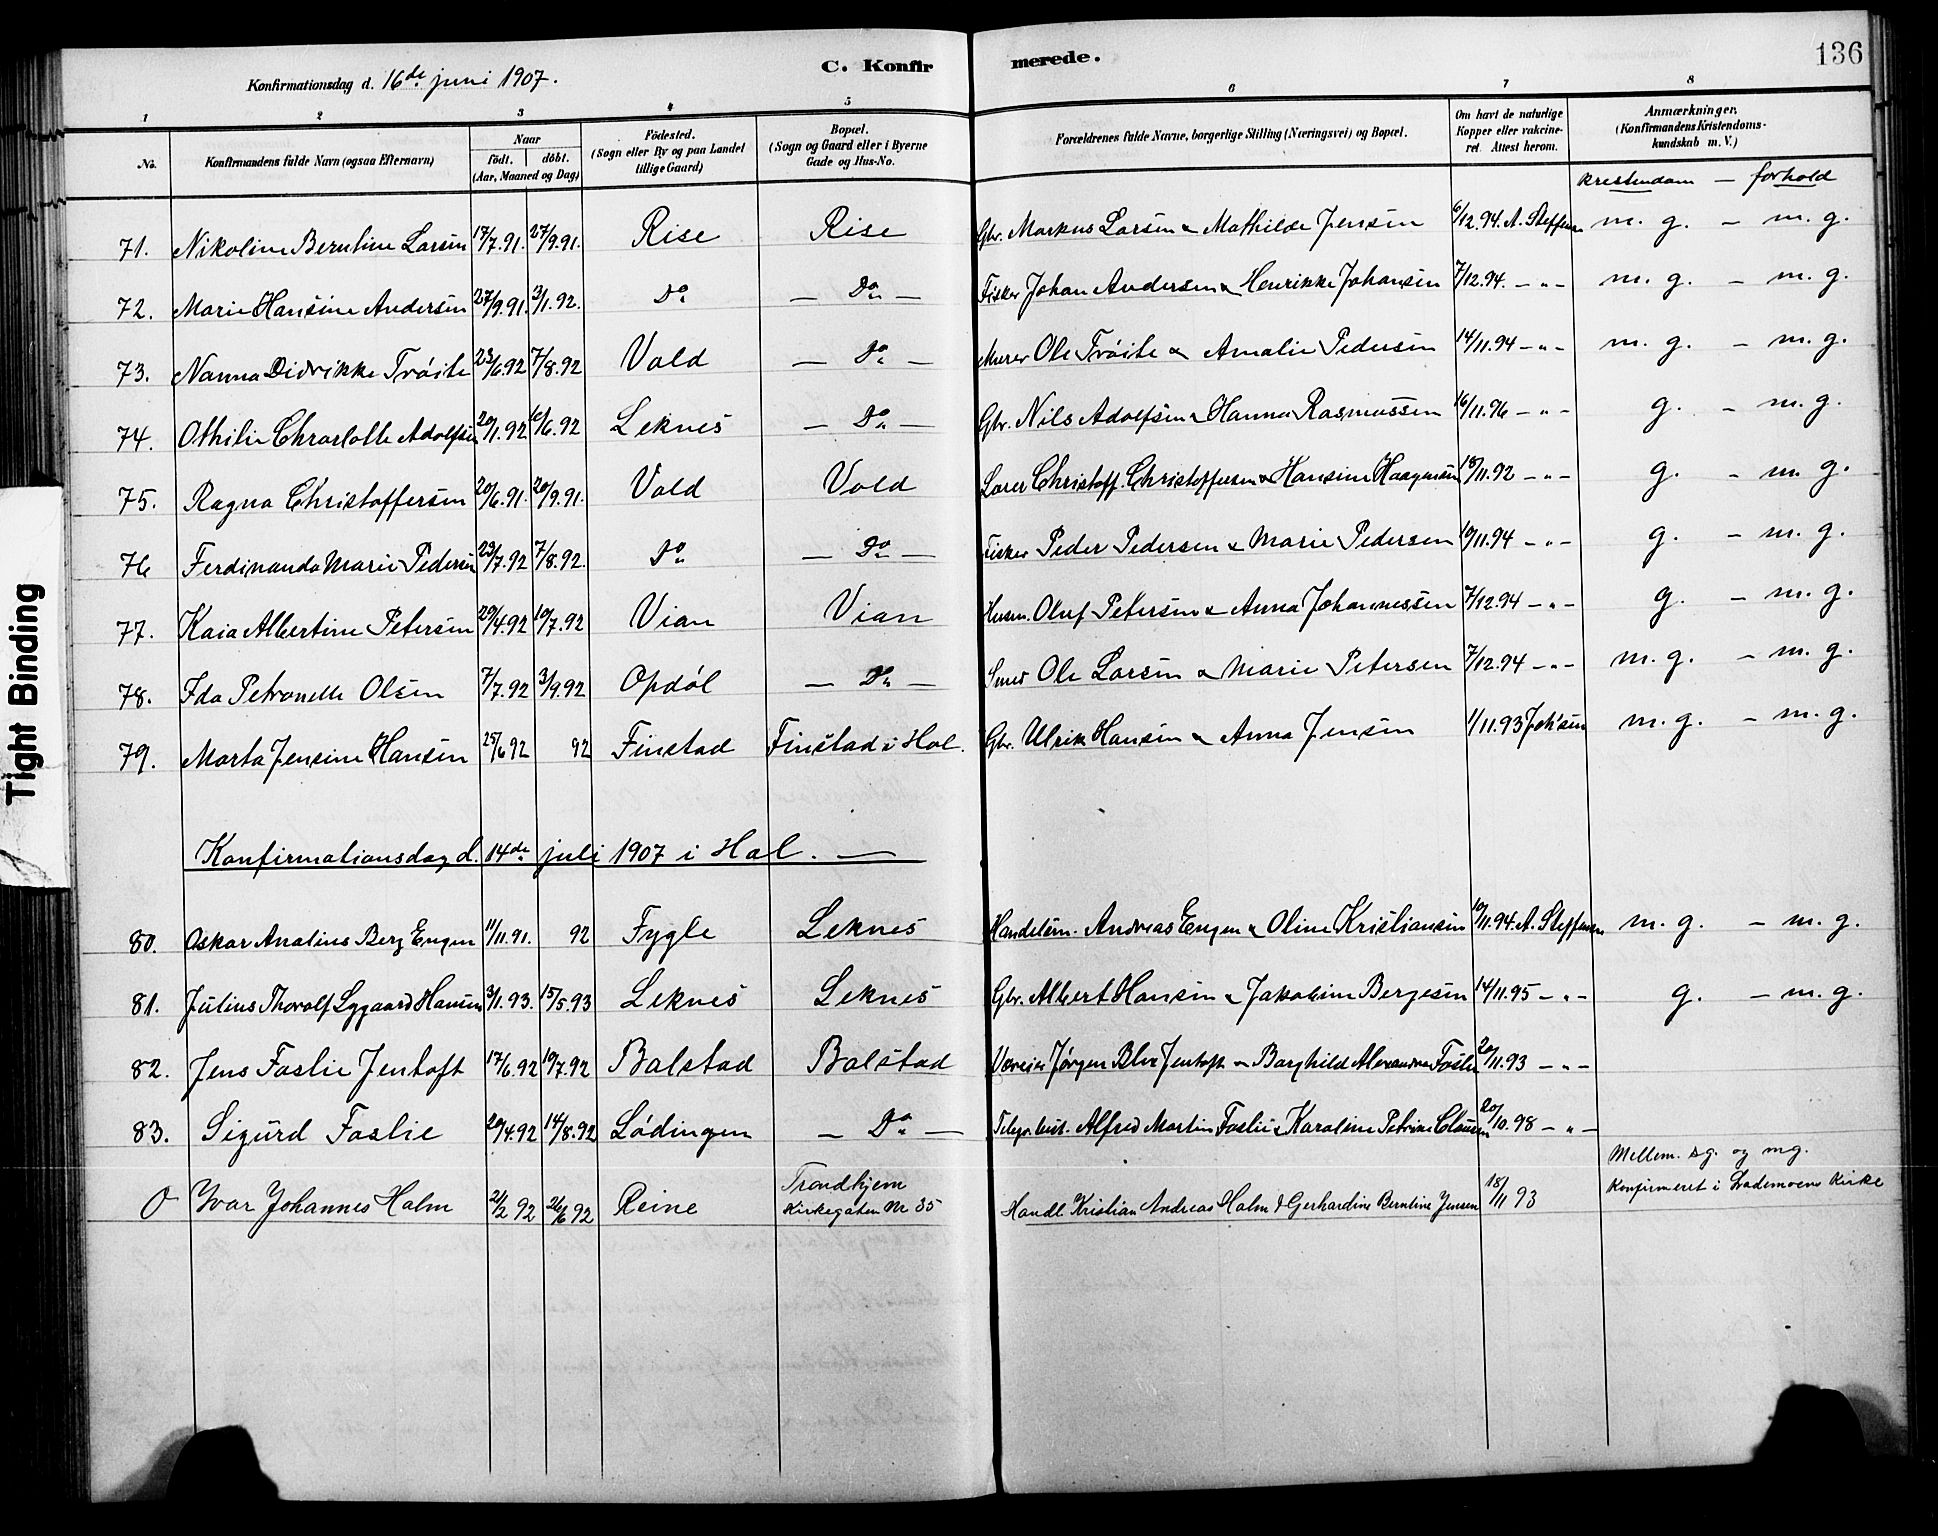 136
C. Konfirmerede.
Konfirmationsdag d. 16de juni 1907.
1 2 3 4 5 6 7 8
No. Konfirmandens fulde Navn (ogsaa Efternavn) Naar født. døbt. (Aar, Maaned og Dag) Fødested. (Sogn eller By og paa Landet tillige Gaard) Bopæl. (Sogn og Gaard eller i Byerne Gade og Hus-No. Forældrenes fulde Navne, borgerlige Stilling (Næringsvei) og Bopæl. Om havt de naturlige Kopper eller vakcineret. Attest herom. Anmærkninger. (Konfirmandens Kristendomskundskab m. V.)
kristendom – forhold
71. Nikoline Berntine Larsen 17/7.91. 27/9.91. Rise Rise Gbr. Markus Larsen & Mathilde Jensen 6/12.94. A. Steffensen m. g. – m. g.
72. Marie Hansine Andersen 27/9.91. 3/1.92. Do – Do – Fisker Johan Andersen & Henrikke Johansen 7/12.94. – " – m. g. – m. g.
73. Nanna Didrikke Tröite 23/6.92 7/8.92 Vold – Do – Murer Ole Tröite & Amalie Pedersen 14/11.94 – " – m. g. – m. g.
74. Othilie Chrarlotte Adolfsen 20/1.92 16/6.92 Leknes – Do – Gbr. Nils Adolfsen & Hanna Rasmussen 16/11.96 – " – g. – m. g.
75. Ragna Christoffersen 20/6.91. 20/9.91. Vold Vold Lærer Christoff. Christoffersen & Hansine Haagensen 18/11.92 – " – g. – m. g.
76 Ferdinanda Marie Pedersen 23/7.92 7/8.92. Do – Do – Fisker Peder Pedersen & Marie Pedersen 10/11.94 – " – g. – m. g.
77. Kaia Albertine Petersen 29/4.92 10/7.92 Vian Vian Husm. Oluf Petersen & Anna Johannessen 7/12.94 – " – g. – m. g.
78. Ida Petronelle Olsen 7/7.92 3/9.92 Opdöl – Do – Smed Ole Larsen & Marie Petersen 7/12.94 – " – m. g. – m. g.
79. Marta Jensine Hansen 25/6 92 92 Finstad Finstad i Hol. Gbr. Ulrik Hansen & Anna Jensen 1/11.93 Joh'sen m. g. – m. g.
Konfirmationsdag d. 14de juli 1907 i Hol. –
80. Oskar Analius Berg Engen 11/11.91. 92 Fygle Leknes Handelsm. Andreas Engen & Oline Kristiansen 10/11.94. A. Steffensen m. g. – m. g.
81. Julius Thoralf Lygaard Hansen 3/1.93. 15/5.93 Leknes Leknes Gbr. Albert Hansen & Jakobine Bergesen 14/11.95 – " – g. – m. g.
82. Jens Foslie Jentoft 17/6.92 10/7.92 Balstad Balstad Væreier Jørgen Blix Jentoft & Borghild Alexandra Foslie 20/11.93 – " –
83. Sigurd Foslie 20/4.92 14/8.92 Lødingen – Do – Telegr. best. Alfred Martin Foslie & Karoline Petrine Clausen 20/10.98 – " –
0 Ivar Johannes Holm 21/2 92 26/6 92 Reine Trondhjem Kirkegaten Nr 35 Handl Kristian Andreas Holm & Gerhardine Berntine Jensen 18/11 93 Mellem. sg. og mg. Konfirmeret i Lademoens Kirke
Tight Binding